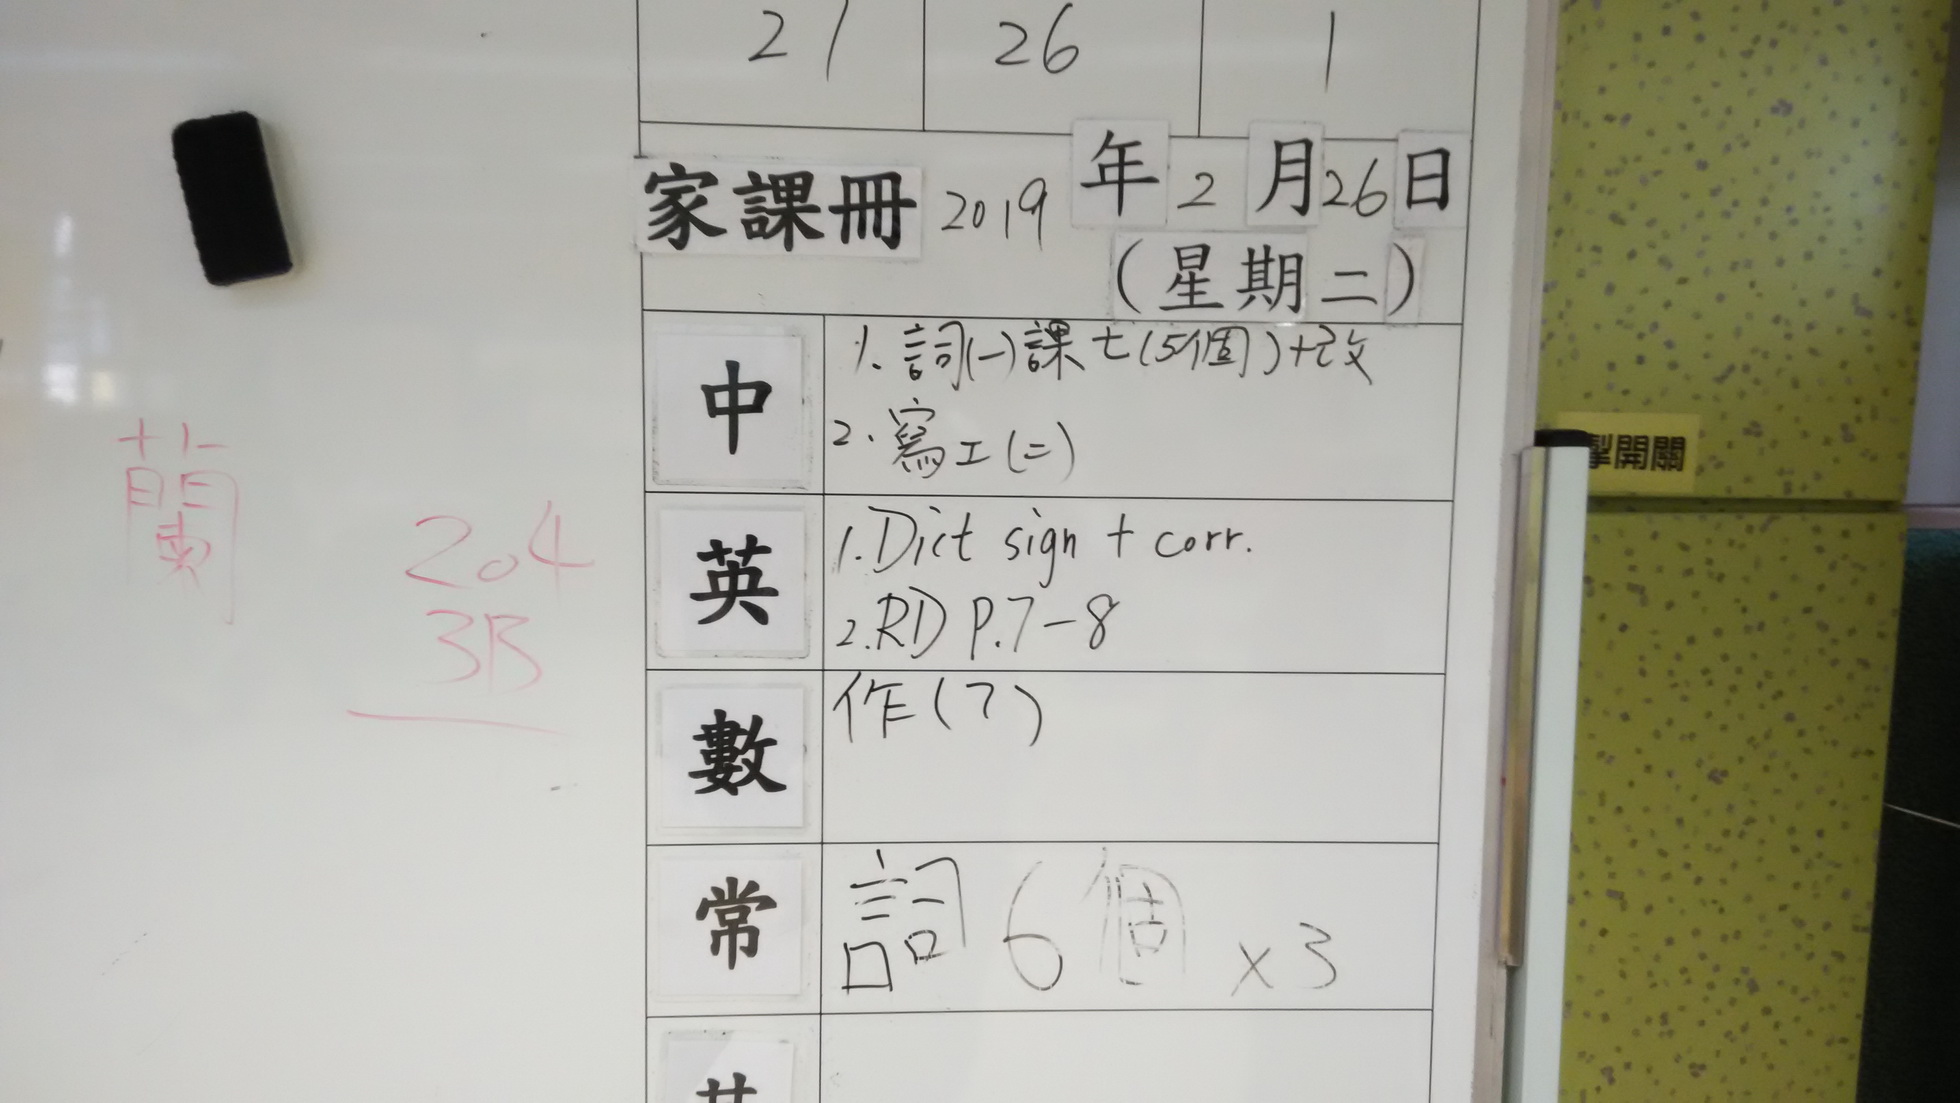 21 26 1
家課冊 2019 年 2 月 26 日
(星期二)
中
1. 詞(一)課七(5個)+改
2. 寫工(二)
英
1. Dict sign + corr.
2. RD P.7-8
數
作(7)
常
詞 6個 x3
蘭
204
3B
開關